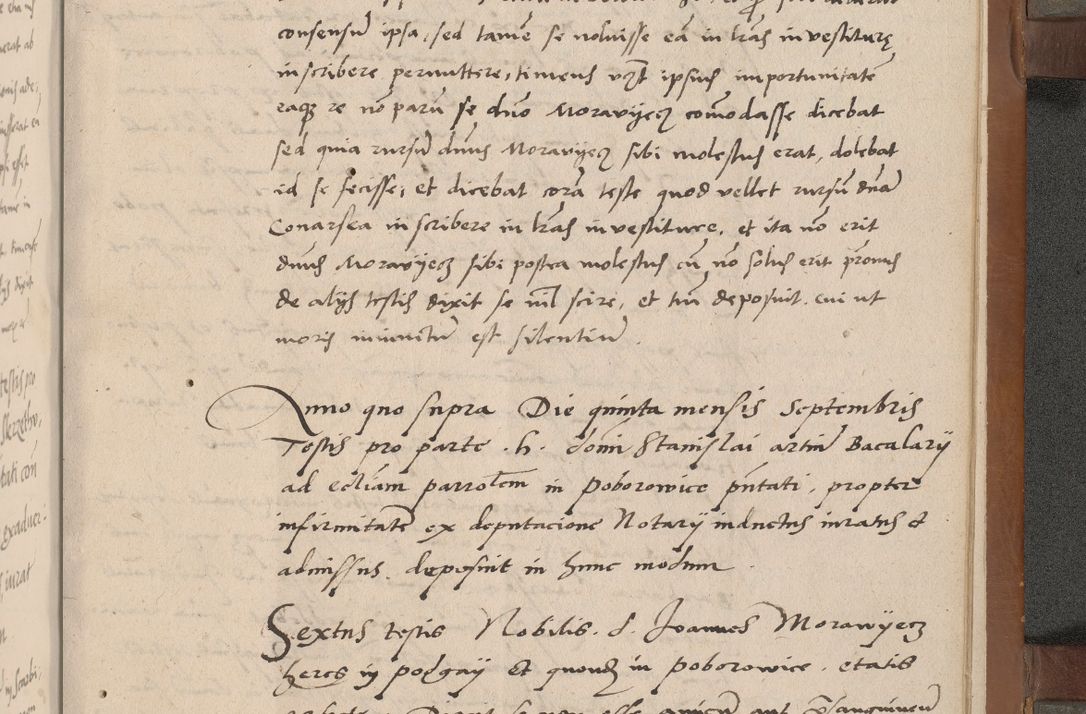 consensū ipsa, sed tamē se noluisse eā in lrās investiturę
inscribere permittere, timens ipsius importunitatē
eaq3 re nō parū se dno Morawyecz comodasse dicebat
sed quia rursū dnus Morawyecz sibi molestus erat, dolebat
id se fecisse, et dicebat corā teste quod vellet rursū dnā
Conarska inscribere in lrās investiture, et ita nō erit
dnus Morawyecz sibi postea molestus cū nō solus erit
de alijs testis dixit se nīl scire, et tm deposuit. cui ut
moris iniunctū est silentiū.
Anno quo supra Die quinta mensis Septembris
Testis pro parte .h. domi Stanislai artiū Bacalarij
ad eccliam parrolem in Poborowice pntati, propter
infirmitatē ex deputacione Notarij inductus iuratus et
admissus, deposuit in hunc modum.
Sextus testis Nobilis. d. Joannes Morawyecz
heres in podgaij Et quond in Poborowice. etatis
Dixit se non esse amicum aut